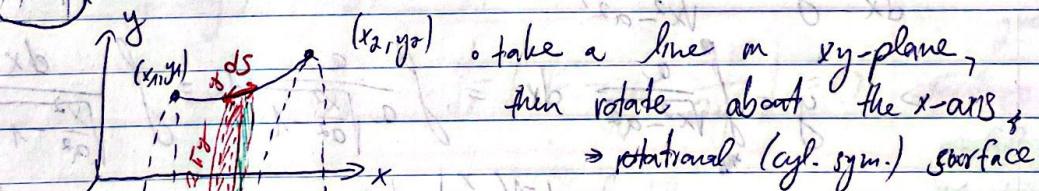 y
(x₂, y₂)
(x₁, y₁)
dS
• take a line in xy-plane,
then rotate about the x-axis,
⇒ rotational (cyl. sym.) surface
y
x